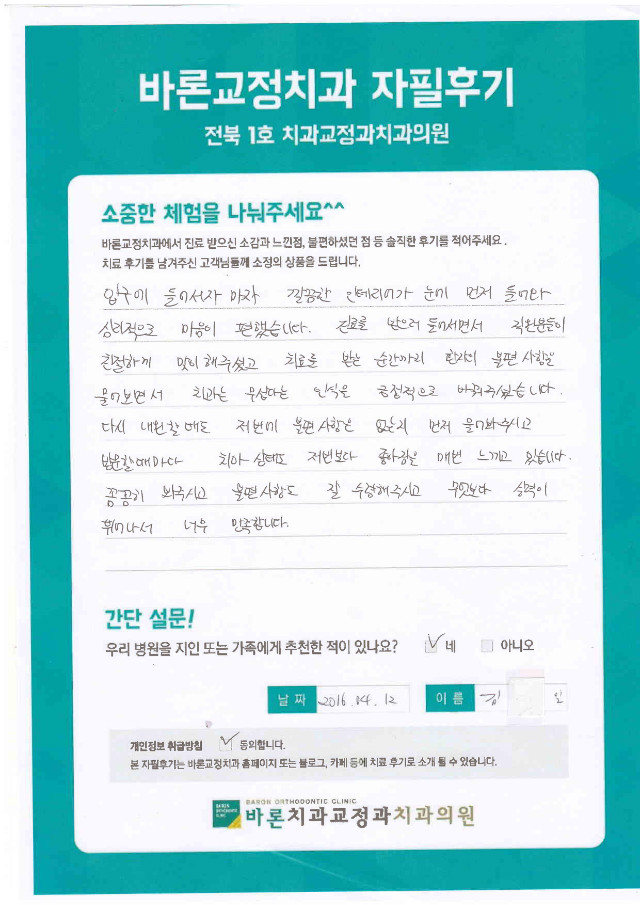 바론교정치과 자필후기
전북 1호 치과교정과치과의원
소중한 체험을 나눠주세요^^
바론교정치과에서 진료 받으신 소감과 느낀점, 불편하셨던 점 등 솔직한 후기를 적어주세요.
치료 후기를 남겨주신 고객님들께 소정의 상품을 드립니다.
입구에 들어서자 마자 깔끔한 인테리어가 눈에 먼저 들어와
심리적으로 마음이 편했습니다. 진료를 받으러 들어서면서 직원분들이
친절하게 맞이해주셨고 치료를 받는 순간까지 환자의 불편 사항을
물어보면서 치과는 무섭다는 인식은 긍정적으로 바꿔주셨습니다.
다시 내원할때도 저번에 불편사항은 없는지 먼저 물어봐주시고
방문할때마다 치아 상태도 저번보다 좋아짐을 매번 느끼고 있습니다.
꼼꼼히 봐주시고 불편사항도 잘 수렴해주시고 무엇보다 실력이
뛰어나서 너무 만족합니다.
간단 설문!
우리 병원을 지인 또는 가족에게 추천한 적이 있나요? 네 아니오
날짜 2016.04.12 이름 김
개인정보 취급방침 동의합니다.
본 자필후기는 바론교정치과 홈페이지 또는 블로그, 카페 등에 치료 후기로 소개 될 수 있습니다.
BARON ORTHODONTIC CLINIC
바론치과교정과치과의원